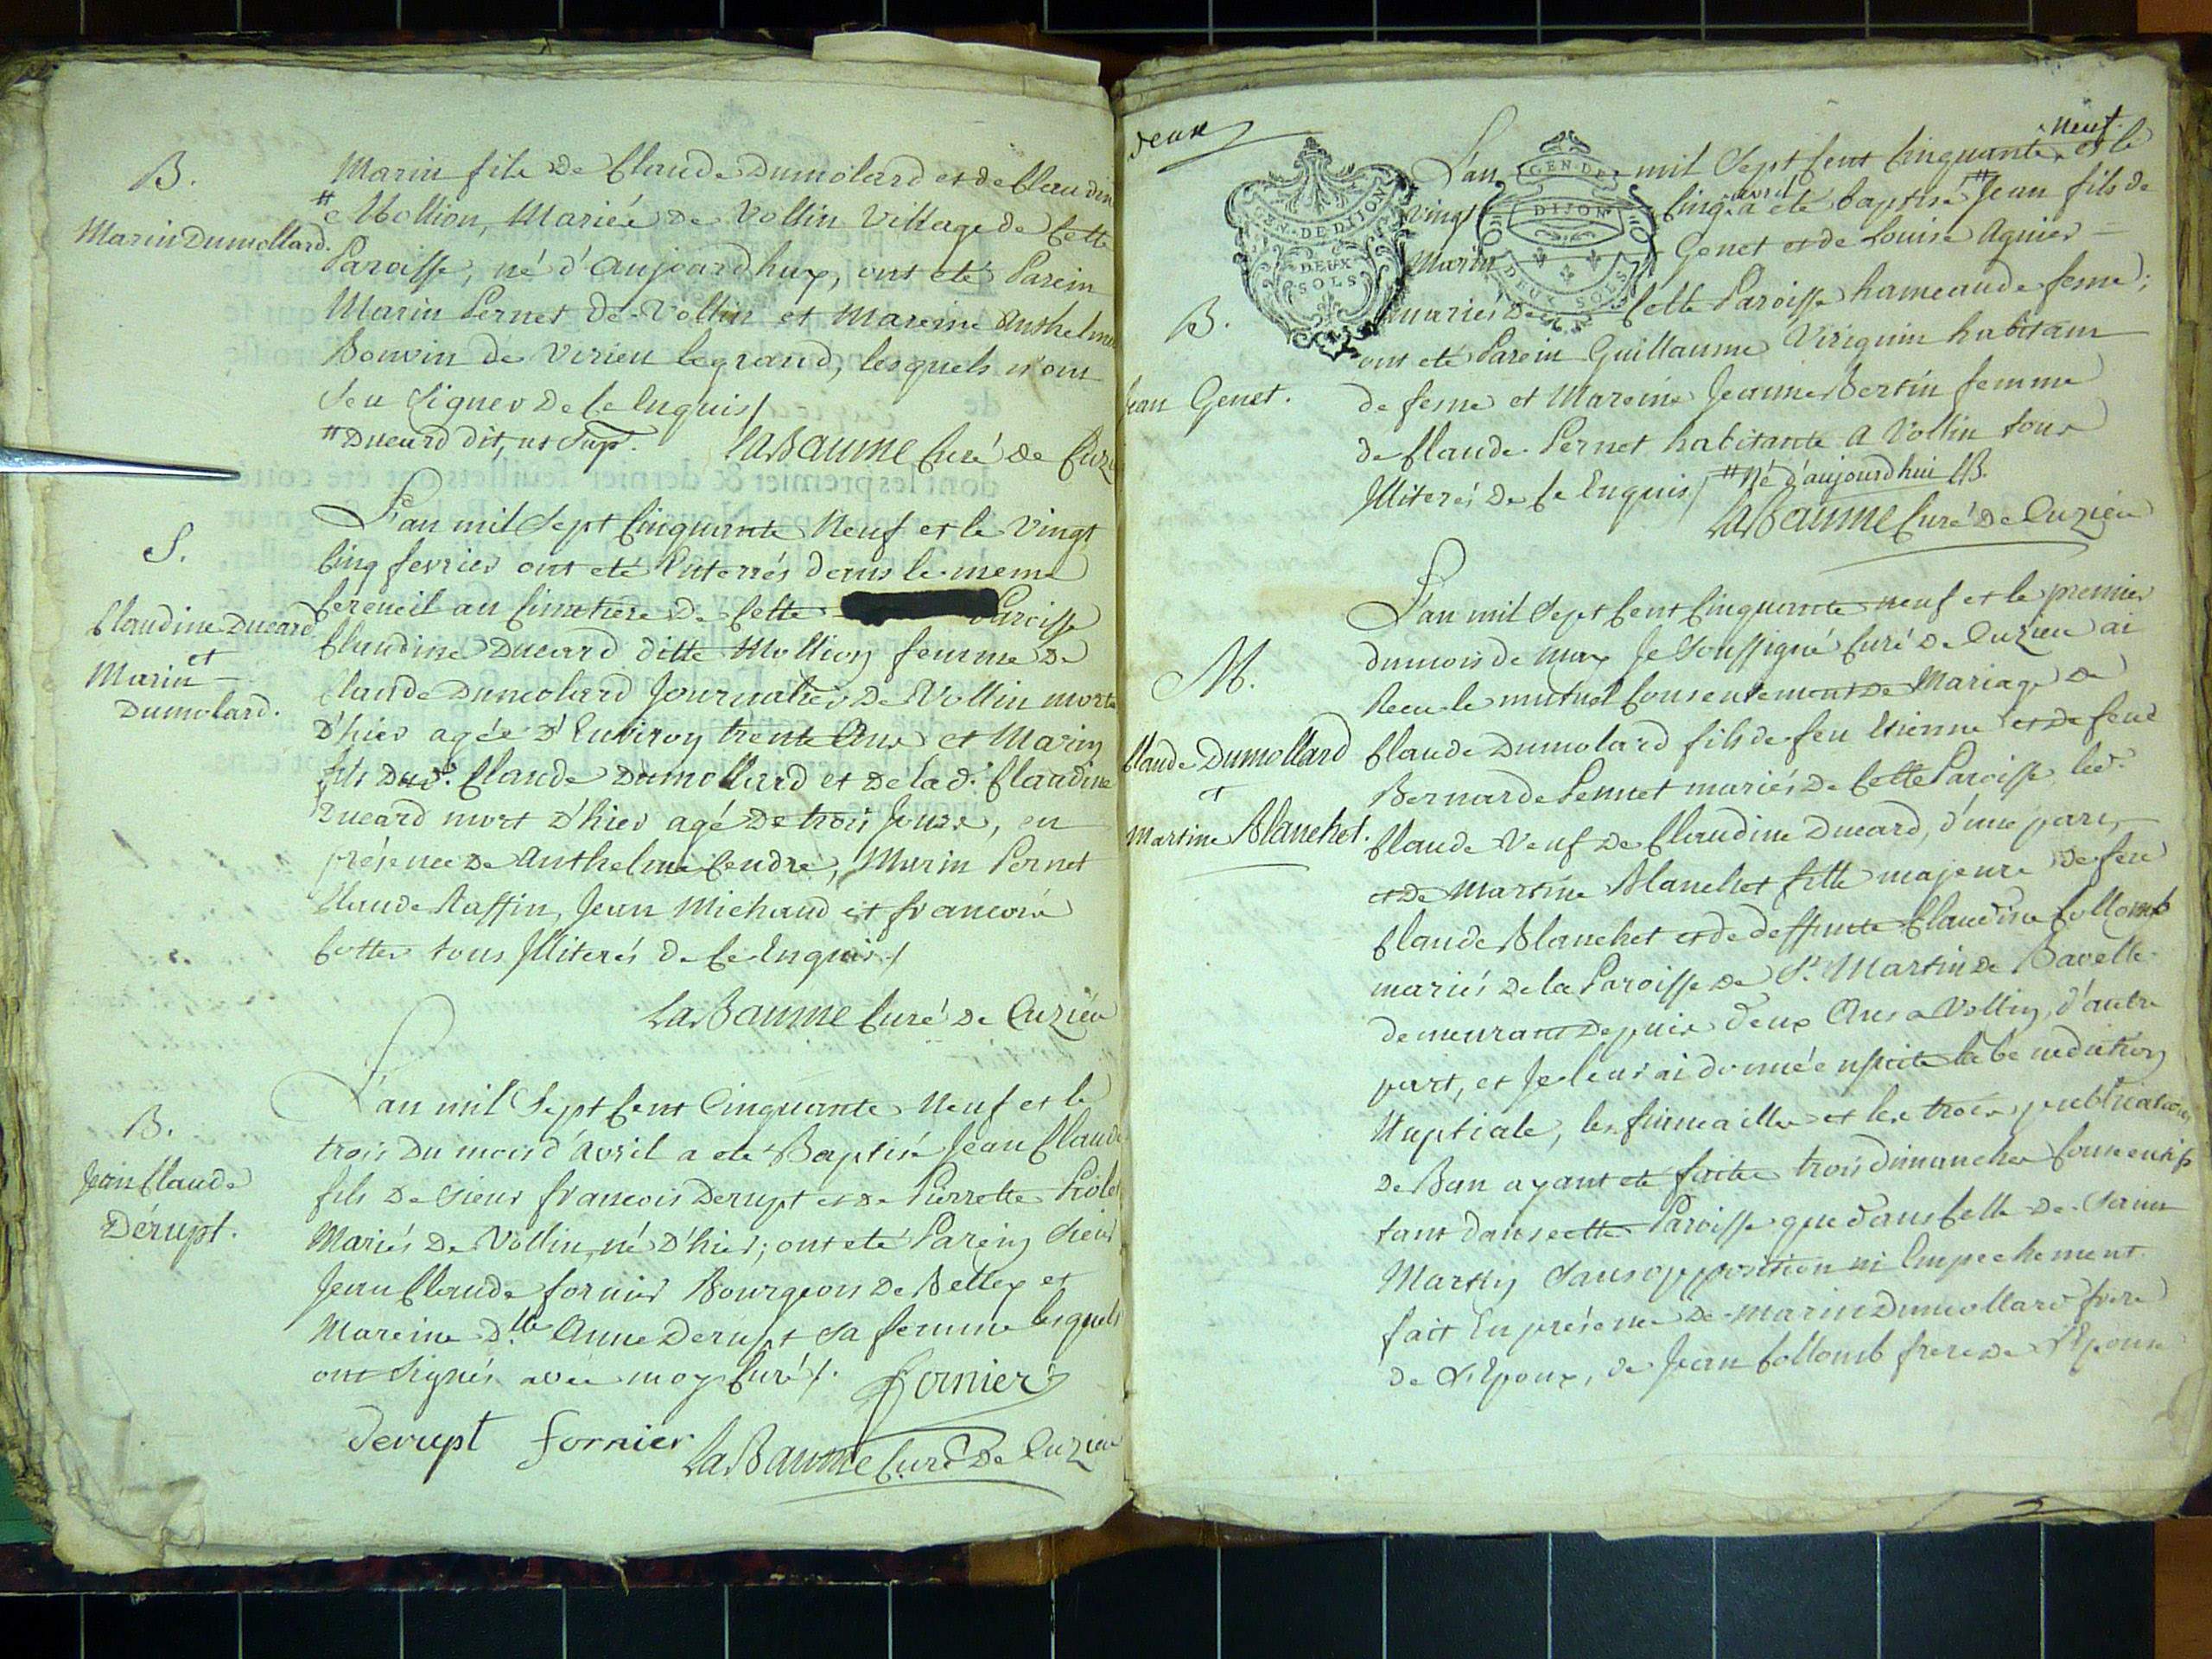 B.
Marin Dumollard.
Marin fils de Claude Dumolard et de Claudin
#e Mollion, Mariée de Vollin Village de Cette
Paroisse, né d'aujourdhuy, ont eté Parein
Marin Pernet de Vollin et Mareine Anthelme
Bonvin de Virieu legrand, lesquels n'ont
seu signer de ce Enquis/
# Ducard dit, ut sup.
LaBaume Curé de Cuzi
S.
Claudine Ducard
et
Marin
Dumolard.
L'an mil Sept Cinquante Neuf et le Vingt
Cinq fevrier ont eté Enterrés dans le meme
Cercueil au Cimetiere de Cette Paroisse
Claudine Ducard ditte Mollion femme de
Claude Dumolard Journalier de Vollin morte
d'hier agée d'Environ trente Ans et Marin
fils dud. Claude Dumollard et de lad. Claudine
Ducard mort d'hier agé de trois Jours, en
présence de Anthelme Cendre, Marin Pernet
Claude Raffin, Jean Michaud et francois
Cottes tous Illiterés de Ce Enquis/
LaBaume Curé de Cuzieu
B.
Jean Claude
Dérupt.
L'an mil Sept Cent Cinquante Neuf et le
trois du mois d'avril a eté Baptisé Jean Claude
fils de sieur francois Derupt et de Pierrette Piolet
Mariés de Vollin, né d'hier; ont eté Parein sieur
Jean Claude fornier Bourgeois de Belley et
Mareine dlle Anne Derupt sa femme lesquels
ont signés avec moy Curé/.
Fornier
Derupt fornier
LaBaume Curé de Cuzieu
deux
GEN. DE DIJON
DEUX
SOLS
GEN. DE
DIJON
DEUX SOLS
B.
Jean Genet.
neuf.
L'an mil Sept Cent Cinquante et le
avril
vingt Cinq a eté baptisé # Jean fils de
Marin Genet et de Louise Agnier
mariés de Cette Paroisse hameau de fesne;
ont eté Parein Guillaume Viriguin habitant
de fesne et Mareine Jeanne Bertin femme
de Claude Pernet habitante a Vollin tous
Illiterés de Ce Enquis/ # Né d'aujourdhui LB.
LaBaume Curé de Cuzieu
M.
Claude Dumollard
et
Martine Blanchet.
L'an mil Sept Cent Cinquante neuf et le premier
du mois de may Je Soussigné Curé de Cuzieu ai
Recu le mutuel Consentement de Mariage de
Claude Dumolard fils de feu Etienne et de feue
Bernarde Pennet mariés de Cette Paroisse led.
Claude Veuf de Claudine Ducard, d'une part,
et de Martine Blanchet fille majeure de feu
Claude Blanchet et de deffunte Claudine Collomb
mariés de la Paroisse de St Martin de Bavelle
demeurant depuis deux Ans a Vollin, d'autre
part, et Je leur ai donnée ensuite la benediction
Nuptiale, les fiancailles et les trois publications
de Ban ayant eté faites trois dimanches Consecutifs
tant dans cette Paroisse que dans Celle de Saint
Martin sans opposition ni Empechement
fait En présence de Marin Dumollard frere
de L'Epoux, de Jean Collomb frere de L'Epouse